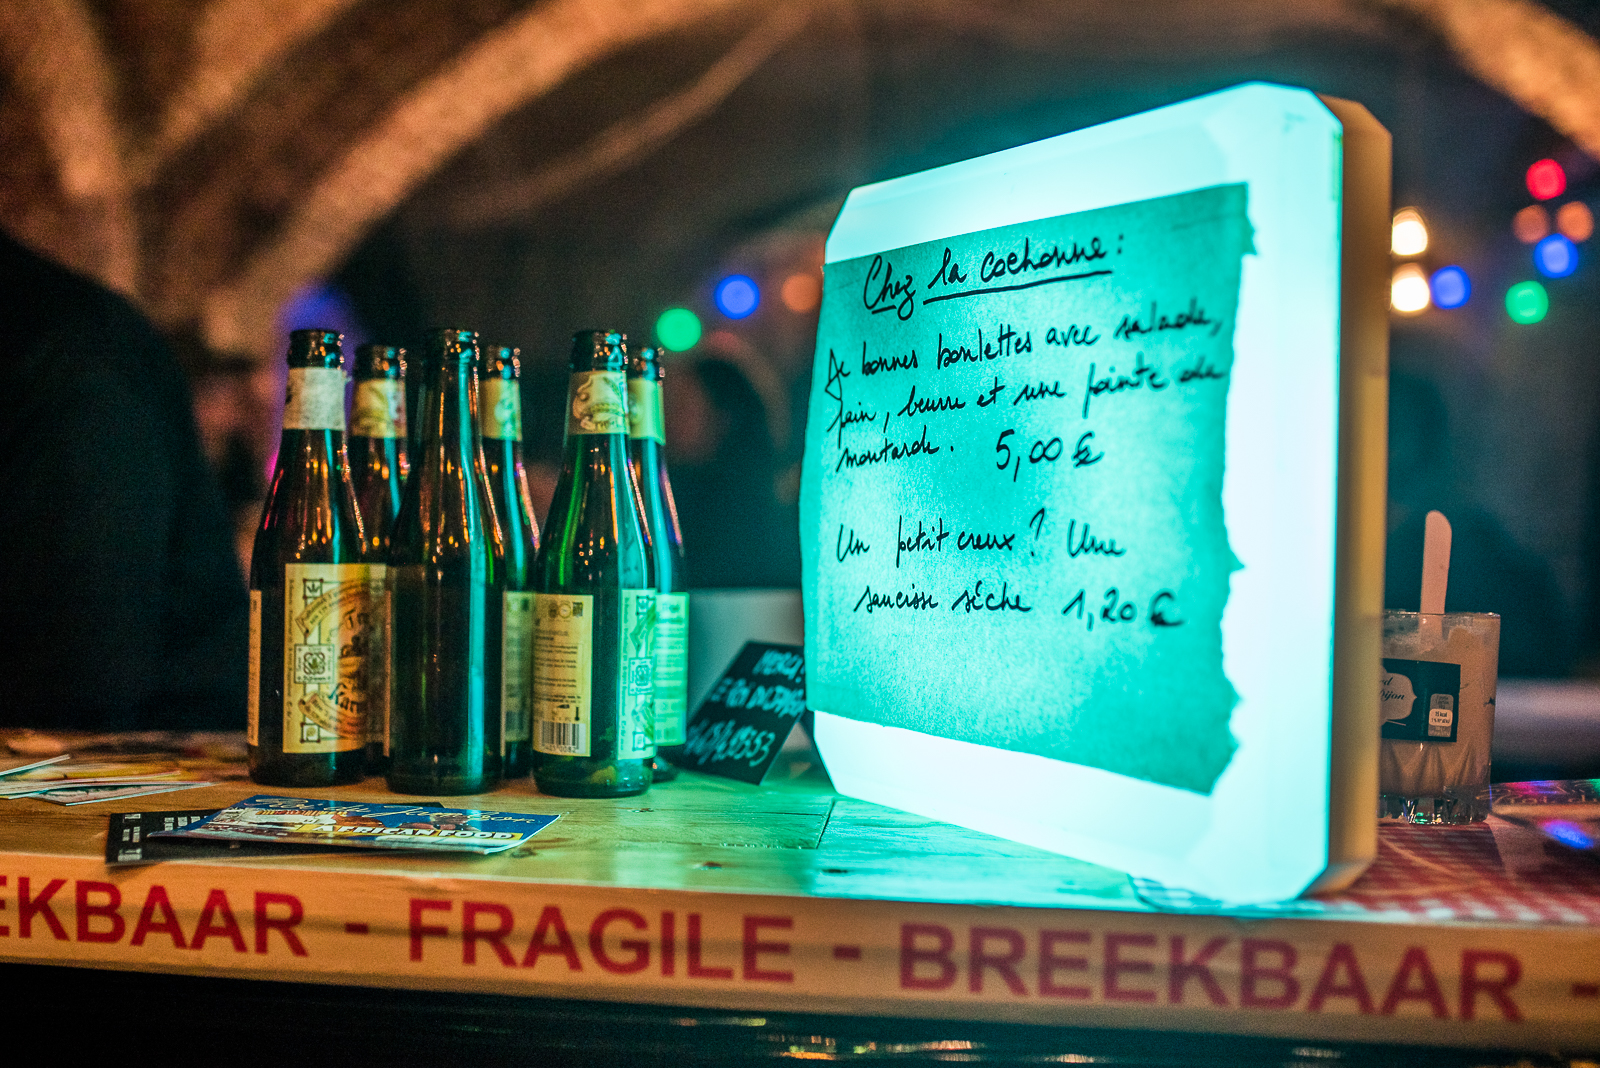 Chez la cochonne :
De bonnes boulettes avec salade,
pain, beurre et une pointe de
moutarde. 5,00 €
Un petit creux ? Une
saucisse sèche 1,20 €
MERCI
AFRICAN FOOD
EKBAAR - FRAGILE - BREEKBAAR -